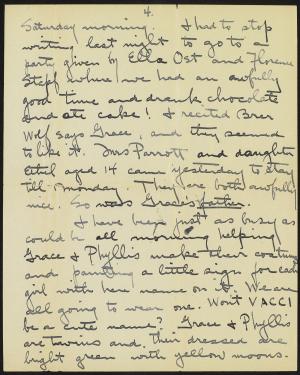 4.
Saturday morning. I had to stop
writing last night to go to a
party given by Ella Ost and Florence
Stepp where we had an awfully
good time and drank chocolate
and ate cake! I recited Brer
Wolf says Grace, and they seemed
to like it. Doris Parrott and daughter
Ethel aged 14 came yesterday to stay
till Monday. They are both awfully
nice. So was Grace's father.
I have been just as busy as
could be all morning helping
Grace & Phyllis make their costume
and painting a little sign for each
girl with her name on it. We are
all going to wear one. Won't VACCI
be a cute name? Grace & Phyllis
are twins and their dresses are
bright green with yellow moons.